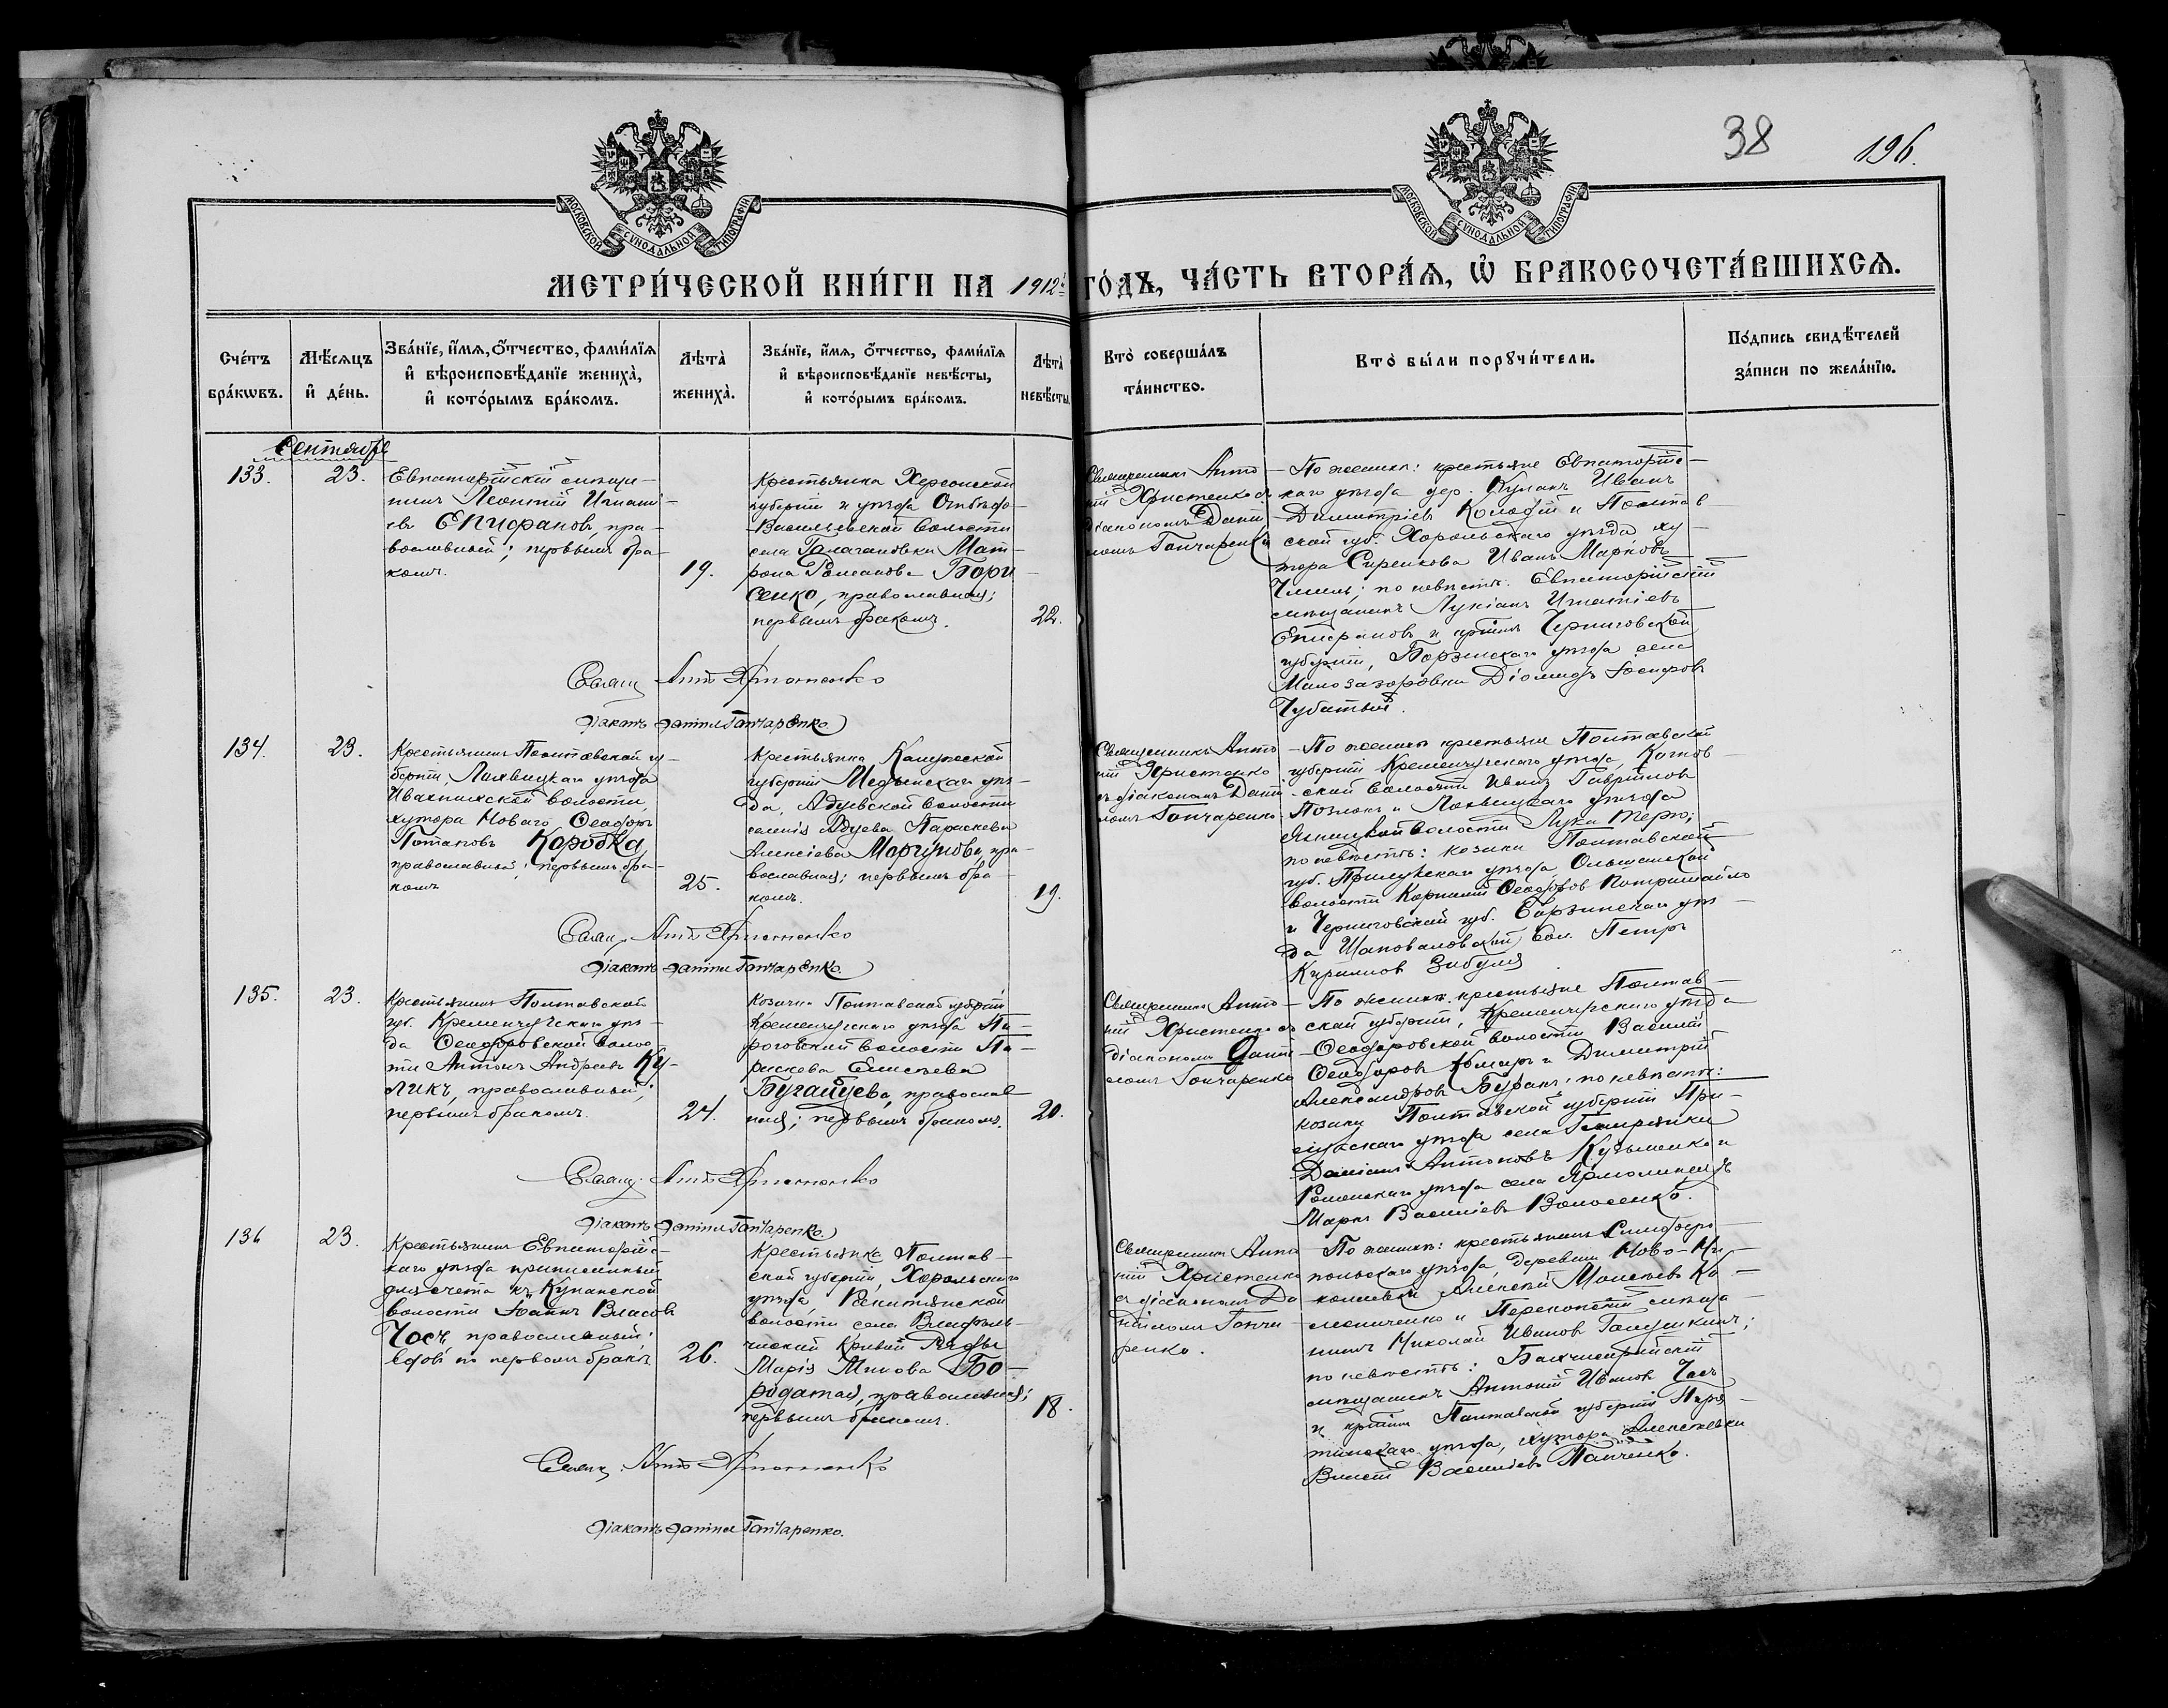 38
196.
МОСКОВСКОЙ СѴНОДАЛЬНОЙ ТИПОГРАФІИ
МОСКОВСКОЙ СѴНОДАЛЬНОЙ ТИПОГРАФІИ
МЕТРИ́ЧЕСКОЙ КНИ́ГИ НА 1912й ГО́ДЪ, ЧА́СТЬ ВТОРА́Ѧ, Ѽ БРАКОСОЧЕТА́ВШИХСѦ.
Сче́тъ
бра́кѡвъ.
Мѣ́сѧцъ
и҆ де́нь.
Зва́нїе, и҆́мѧ, ѻ҆́тчество, фами́лїѧ
и҆ вѣроисповѣ́данїе жениха̀,
и҆ кото́рымъ бра́комъ.
Лѣта̀
жениха̀.
Зва́нїе, и҆́мѧ, ѻ҆́тчество, фами́лїѧ
и҆ вѣроисповѣ́данїе невѣ́сты,
и҆ кото́рымъ бра́комъ.
Лѣта̀
невѣ́сты.
Кто̀ соверша́лъ
та́инство.
Кто̀ бы́ли порꙋчи́тели.
По́дпись свидѣ́телей
за́писи по жела́нїю.
Сентябрь
133.
23.
Евпаторійскій мѣща-
нинъ Леонтій Игнаті-
евъ Епифановъ, пра-
вославный; первымъ бра-
комъ.
19.
Крестьянка Херсонской
губерніи и уѣзда
Васильевской волости
села Галагановки Мат-
рона Романова Бори-
сенко, православная;
первымъ бракомъ.
22.
Священникъ Анто-
ній Христенко съ
діакономъ Дані-
ломъ Гончаренко
По женихѣ: крестьяне Евпаторійс-
каго уѣзда дер. Куланъ Иванъ
Димитріевъ и Полтав-
ской губ. Хорольскаго уѣзда ху-
тора Сиренкова Иванъ Марковъ
по невѣстѣ: Евпаторійскій
мѣщанинъ Лукіанъ Игнатіевъ
Епифановъ и кр-нинъ Черниговской
губерніи, Борзенскаго уѣзда села
Малозагоровки Діомидъ Іосифовъ
Чубатый.
Свящ. Антоній Христенко
Діаконъ Даніилъ Гончаренко
134.
23.
Крестьянинъ Полтавской гу-
берніи, Лохвицкаго уѣзда
волости,
хутора Новаго Ѳеодоръ
Потаповъ Коробка,
православный; первымъ бра-
комъ
25.
Крестьянка Калужской
губерніи Медынскаго уѣз-
да, Адуевской волости
селенія Адуева Параскева
Алексіева Моргунова, пра-
вославная; первымъ бра-
комъ.
19.
Священникъ Анто-
ній Христенко
съ діакономъ Дані-
ломъ Гончаренко
По женихѣ крестьяне Полтавской
губерніи Кременчугскаго уѣзда,
ской волости Иванъ Гавріиловъ
и Лохвицкаго уѣзда
волости Лука
по невѣстѣ: козаки Полтавской
губ. Прилукскаго уѣзда, Ольшанской
волости Корнилій Ѳеодоровъ
и Черниговской губ. Борзенскаго уѣз-
да Шаповаловской вол. Петръ
Кирилловъ Зибуля
Свящ. Антоній Христенко
Діаконъ Даніилъ Гончаренко.
135.
23.
Крестьянинъ Полтавской
губ. Кременчугскаго уѣз-
да Ѳеодоровской волос-
ти Антонъ Андреевъ Ку-
ликъ, православный;
первымъ бракомъ.
24.
Козачка Полтавской губерніи
Кременчугскаго уѣзда Пи-
роговской волости Па-
раскева Елисѣева
Бугайцева, православ-
ная; первымъ бракомъ.
20.
Священникъ Анто-
ній Христенко съ
діакономъ Дані-
ломъ Гончаренко
По женихѣ: крестьяне Полтав-
ской губерніи, Кременчугскаго уѣзда
Ѳеодоровской волости Василій
Ѳеодоровъ Комаръ и Димитрій
Александровъ Буракъ; по невѣстѣ:
козаки Полтавской губерніи При-
лукскаго уѣзда села
Даніилъ Антоновъ Кузьменко и
Роменскаго уѣзда села Ярмолинецъ
Маркъ Василіевъ Волосенко.
Свящ. Антоній Христенко
Діаконъ Даніилъ Гончаренко.
136
23.
Крестьянинъ Евпаторійс-
каго уѣзда приписанный
для счета къ Куланской
волости Іоаннъ Власовъ
Чосъ православный;
вдовъ по первомъ бракѣ.
26.
Крестьянка Полтав-
ской губерніи, Хорольскаго
уѣзда,
волости села
Кривой Руды
Марія Минова Бо-
родатая, православная;
первымъ бракомъ.
18.
Священникъ Анто-
ній Христенко
съ діакономъ Да-
ніиломъ Гонча-
ренко.
По женихѣ: крестьянинъ Симферо-
польскаго уѣзда, деревни Ново-Ни-
колаевки Алексій Моисѣевъ Ко-
и Перекопскій мѣща-
нинъ Николай Ивановъ
по невѣстѣ: Бахчисарайскій
мѣщанинъ Антоній Ивановъ Чосъ
и кр-нинъ Полтавской губерніи Пиря-
тинскаго уѣзда, хутора Алексѣевки
Василіевъ Панченко.
Свящ. Антоній Христенко
Діаконъ Даніилъ Гончаренко.